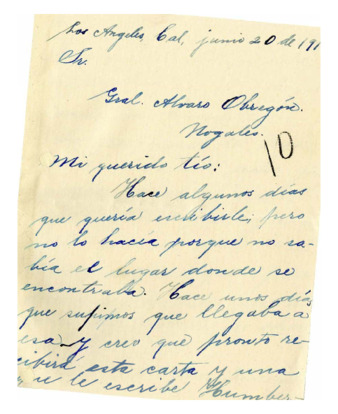 Los Angeles, Cal, junio 20 de 191
Sr.
Gral. Alvaro Obregón.
Nogales.
10
Mi querido tío:
Hace algunos días
que quería escribirle; pero
no lo hacía porque no sa-
bía el lugar donde se
encontraba. Hace unos días
que supimos que llegaba a
esa y creo que pronto re-
cibirá esta carta y una
que le escribe Humber-